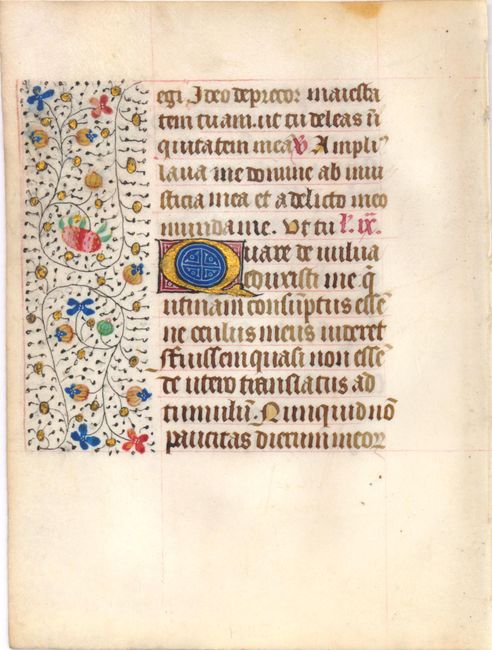 egi. Ideo deprecor maiesta
tem tuam. ut tu deleas ini
quitatem mea V Ampli
laua me domine ab iniu
sticia mea et a delicto meo
munda me. Ut tu l. ix.
Quare de uulua
eduxisti me q̄
utinam consūptus essē
ne oculus meus uideret
Fuissem quasi non essē
de utero translatus ad
tumulū. Nunquid nō
paucitas dierum meor